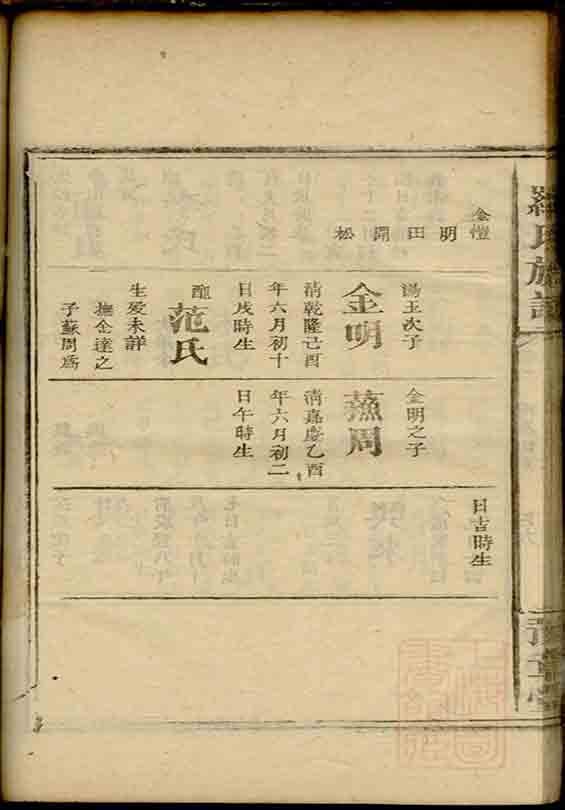 羅氏族譜
豫章堂
金愷
明
田
開
松
湯玉次子
金明
清乾隆己酉
年六月初十
日戌時生
配
范氏
生愛未詳
撫金達之
子蘇周爲
金明之子
周
清嘉慶乙酉
年六月初二
日午時生
日吉時生
上海圖
書館藏